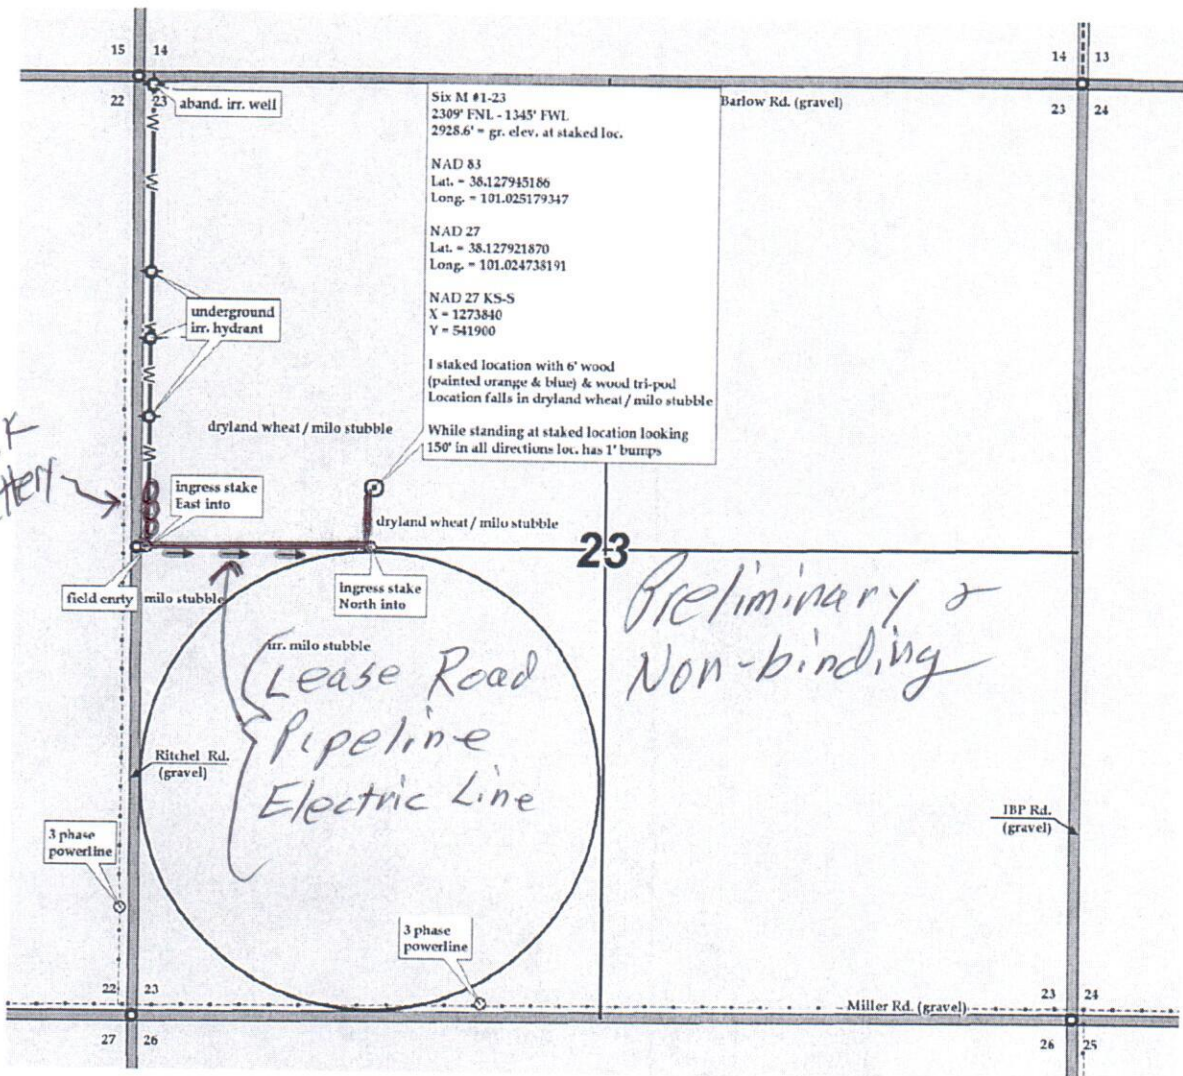 15 14
14 13
22 23
aband. irr. well
Six M #1-23
2309' FNL - 1345' FWL
2928.6' = gr. elev. at staked loc.
NAD 83
Lat. = 38.127945186
Long. = 101.025179347
NAD 27
Lat. = 38.127921870
Long. = 101.024738191
NAD 27 KS-S
X = 1273840
Y = 541900
I staked location with 6' wood
(painted orange & blue) & wood tri-pod
Location falls in dryland wheat / milo stubble
While standing at staked location looking
150' in all directions loc. has 1' bumps
Barlow Rd. (gravel)
23 24
underground
irr. hydrant
dryland wheat / milo stubble
ingress stake
East into
dryland wheat / milo stubble
23
field enrty
milo stubble
ingress stake
North into
Preliminary &
Non-binding
irr. milo stubble
Lease Road
Pipeline
Electric Line
Ritchel Rd.
(gravel)
IBP Rd.
(gravel)
3 phase
powerline
3 phase
powerline
22 23
Miller Rd. (gravel)
23 24
27 26
26 25